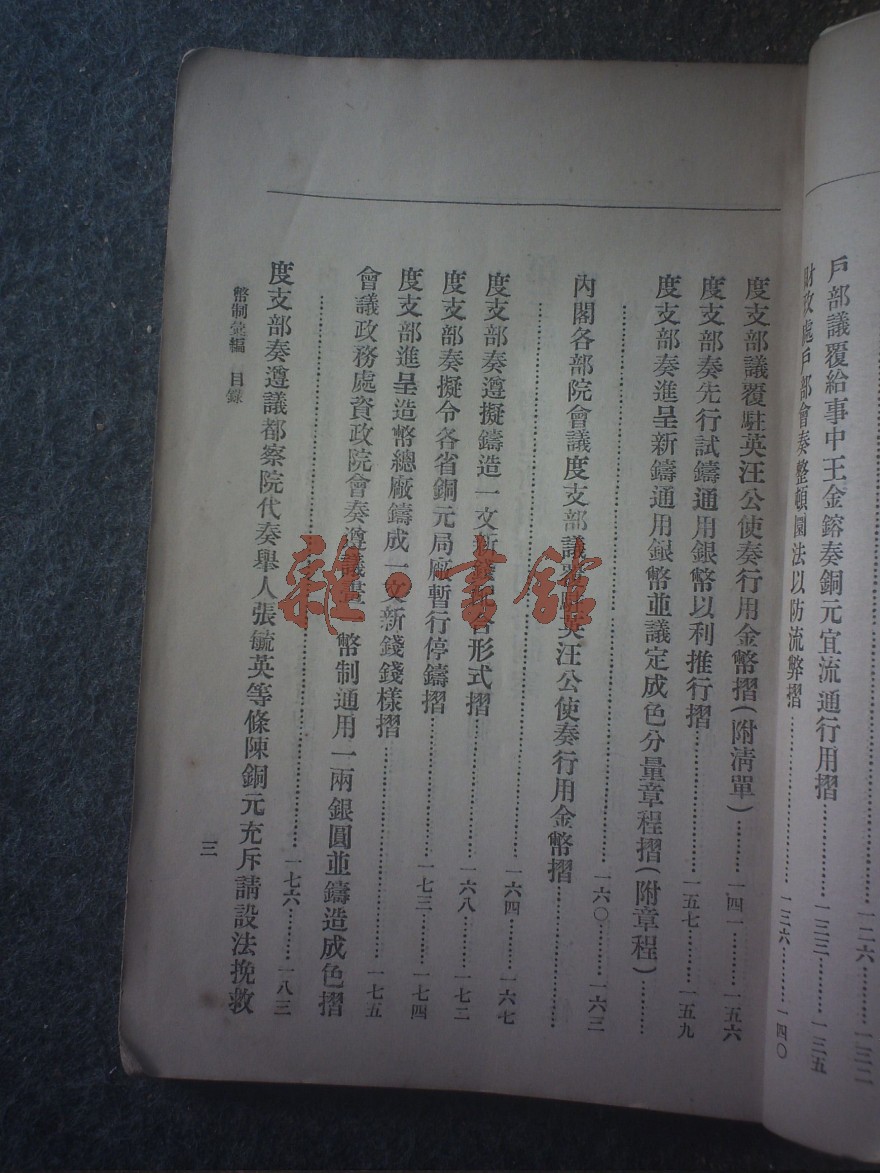 一二六………一三二
戶部議覆給事中王金鎔奏銅元宜流通行用摺………一三三………一三五
財政處戶部會奏整頓圜法以防流弊摺………一三六………一四〇
度支部議覆駐英汪公使奏行用金幣摺(附清單)………一四一………一五六
度支部奏先行試鑄通用銀幣以利推行摺………一五七………一五九
度支部奏進呈新鑄通用銀幣並議定成色分量章程摺(附章程)………
………一六〇………一六三
內閣各部院會議度支部議覆駐英汪公使奏行用金幣摺………
………一六四………一六七
度支部奏遵擬鑄造一文新錢配合形式摺
度支部奏擬令各省銅元局廠暫行停鑄摺………一六八………一七二
度支部進呈造幣總廠鑄成一文新錢錢樣摺………一七三………一七四
會議政務處資政院會奏遵議畫一幣制通用一兩銀圓並鑄造成色摺
一七五
………一七六………一八三
度支部奏遵議都察院代奏舉人張毓英等條陳銅元充斥請設法挽救
幣制彙編 目錄
三
雜·書館